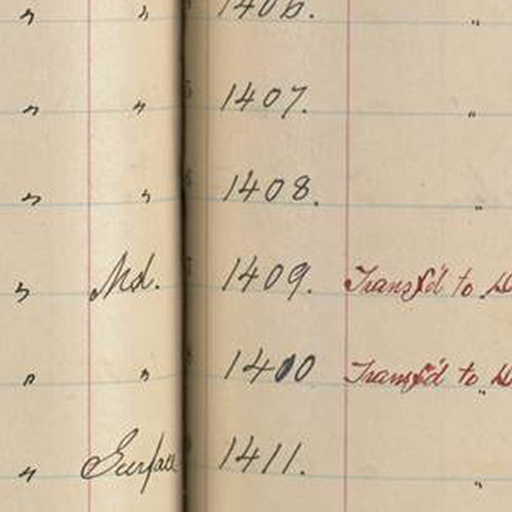 " " 1406. "
" " 1407. "
" " 1408. "
" Md. 1409. Transf'd to
" " 1400 Transf'd to "
" Surface 1411. "